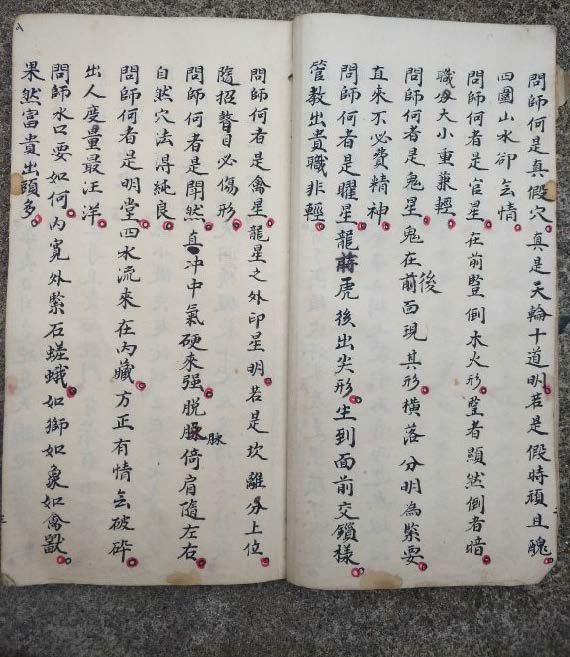 問師何是真假穴真是天輪十道明若是假時頑且醜
四圍山水卻無情
問師何者是官星在前豎倒木火形豎者顯然倒者暗
職分大小重兼輕
問師何者是鬼星鬼在前後面現其形橫落分明為緊要
直來不必費精神
問師何者是曜星龍虎後出尖形生到面前交鎖樣
管教出貴職非輕
問師何者是禽星龍星之外印星明若是坎離分上位
隨招瞽目必傷形
問師何者是開然直冲中氣硬來强脫脉倚肩隨左右
自然穴法淂純良
問師何者是明堂四水流來在內藏方正有情無破碎
出人度量最汪洋
問師水口要如何內寬外緊石蹉蛾如獅如象如禽獸
果然富貴出頭多